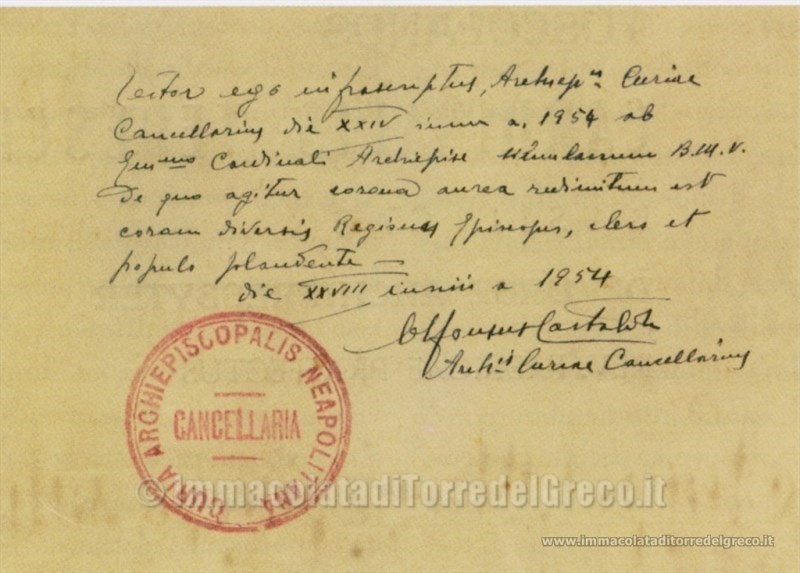 Testor ego infrascriptus, Archiep.us Curiae
Cancellarius die XXIV iunii a. 1954 ab
Em.mo Cardinali Archiepisc simulacrum B.M.V.
De quo agitur corona aurea redimitum est
coram diversis Regionis Episcopis, clero et
populo plaudente —
die XXVIII iunii a 1954
Alfonsus Castaldo
Arch.is Curiae Cancellarius
CURIA ARCHIEPISCOPALIS NEAPOLITANA
CANCELLARIA
© ImmacolatadiTorredelGreco.it
www.immacolataditorredelgreco.it